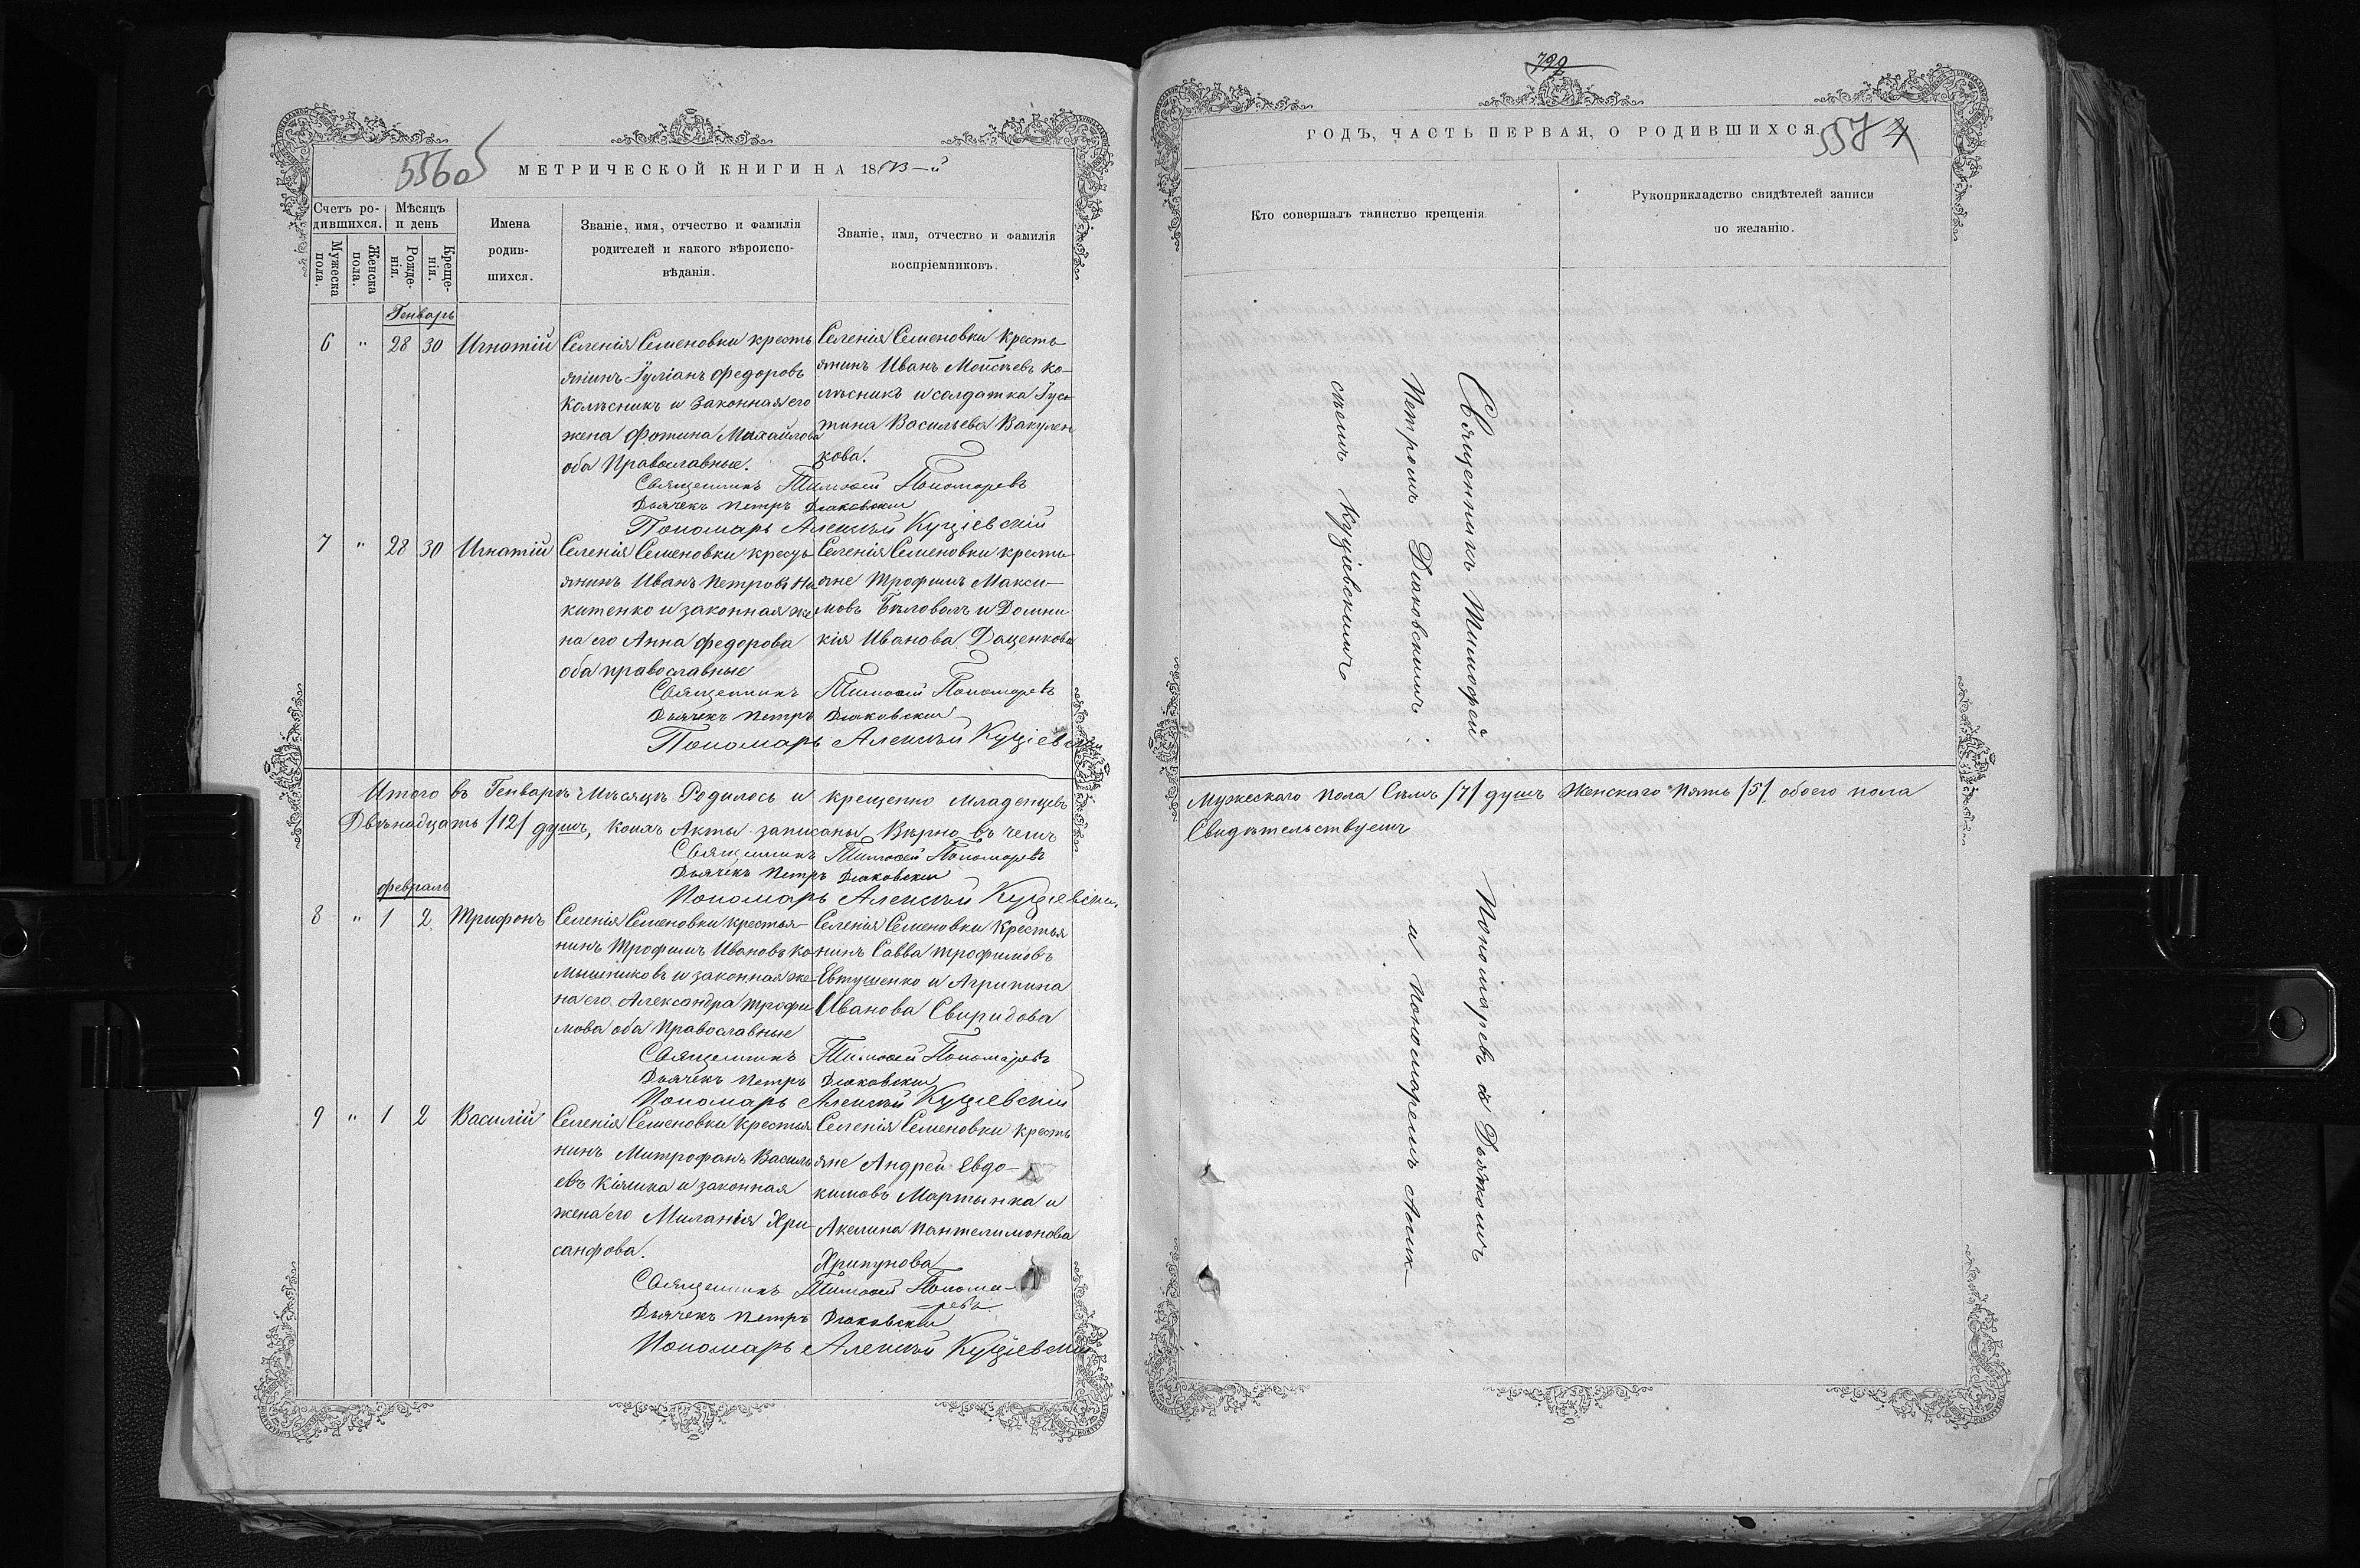 556об
МЕТРИЧЕСКОЙ КНИГИ НА 1873-й
Счетъ ро-
дившихся.
Мужеска пола.
Женска пола.
Мѣсяцъ
и день
Рожде-
нія.
Креще-
нія.
Имена
родив-
шихся.
Званіе, имя, отчество и фамилія
родителей и какого вѣроиспо-
вѣданія.
Званіе, имя, отчество и фамилія
воспріемниковъ.
Генварь
6 " 28 30 Игнатій
Селенія Семеновки кресть
янинъ Іуліанъ Федоровъ
Колѣсникъ и законная его
жена Фотина Михайлова
оба Православные.
Селенія Семеновки Кресть
янинъ Иванъ Моисѣевъ Ко-
лѣсникъ и солдатка Іус-
тина Васильева Вакулен
кова.
Священникъ Тимофей Пономаревъ
Дьячекъ Петръ Дьяковскій
Пономарь Алексѣй Куціевскій
7 " 28 30 Игнатій
Селенія Семеновки кресть
янинъ Иванъ Петровъ Ни
китенко и законная же
на его Анна Федорова
оба православные
Селенія Семеновки кресть
яне Трофимъ Макси-
мовъ Бѣловолъ и Домни
кія Иванова Даценкова
Священникъ Тимофей Пономаревъ
Дьячекъ Петръ Дьяковскій
Пономарь Алексѣй Куціевскій
Итого въ Генварѣ мѣсяцѣ Родилось и крещенно младенцевъ
Двѣнадцать /12/ душъ, коихъ Акты записаны Вѣрно въ чемъ
Священникъ Тимофей Пономаревъ
Дьячекъ Петръ Дьяковскій
Пономарь Алексѣй Куціевскій
Февраль
8 " 1 2 Трифонъ
Селенія Семеновки крестья-
нинъ Трофимъ Ивановъ Ка
мышниковъ и законная же-
на его Александра Трофи
мова оба Православные
Селенія Семеновки Крестья
нинъ Савва Трофимовъ
Евтушенко и Агрипина
Иванова Свиридова
Священникъ Тимофей Пономаревъ
Дьячекъ Петръ Дьяковскій
Пономарь Алексѣй Куціевскій
9 " 1 2 Василій
Селенія Семеновки крестья
нинъ Митрофанъ Василь
евъ Кіяшка и законная
жена его Миланія Хри-
санфова.
Селенія Семеновки кресть
яне Андрей Евдо-
кимовъ Мартынка и
Акелина Пантелимонова
Хрипунова
Священникъ Тимофей Понома-
ревъ
Дьячекъ Петръ Дьяковскій
Пономарь Алексѣй Куціевскій
799
ГОДЪ, ЧАСТЬ ПЕРВАЯ, О РОДИВШИХСЯ.
557
Кто совершалъ таинство крещенія.
Рукоприкладство свидѣтелей записи
по желанію.
Священникъ Тимофей Пономаревъ съ Дьячкомъ
Петромъ Дьяковскимъ и Пономаремъ Алек-
сѣемъ Куціевскимъ
Мужескаго пола Семь /7/ душъ Женскаго Пять /5/ обоего пола
Свидѣтельствуемъ